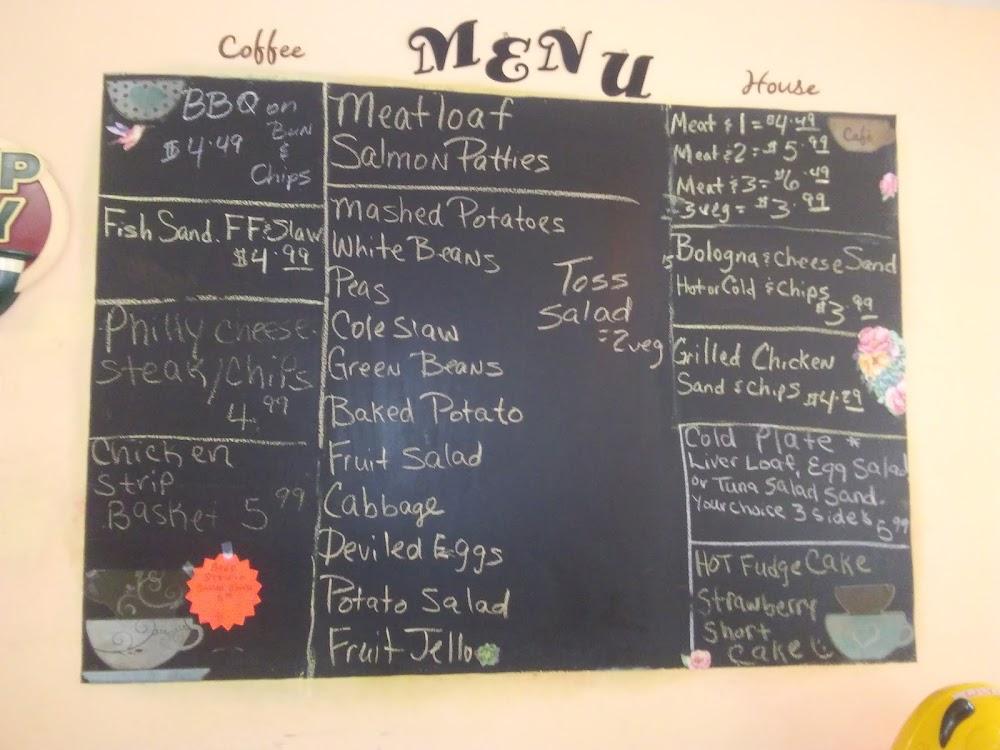 Coffee
MENU
House
P
Y
BBQ on
Bun
$4.49
&
Chips
Fish Sand. FF & Slaw
$4.99
Philly Cheese
Steak/Chips
4.99
Chicken
Strip
Basket 5.99
Meatloaf
Salmon Patties
Mashed Potatoes
White Beans
Peas
Cole Slaw
Green Beans
Baked Potato
Fruit Salad
Cabbage
Deviled Eggs
Potato Salad
Fruit Jello
Toss
Salad
=2veg
Café
Meat & 1 = $4.49
Meat & 2 = $5.99
Meat & 3 = $6.49
3 veg = $3.99
Bologna & Cheese Sand
Hot or Cold & Chips
$3.99
Grilled Chicken
Sand & Chips $4.29
Cold Plate *
Liver Loaf, Egg Salad
or Tuna Salad Sand.
Your choice 3 sides
5.99
HOT Fudge Cake
Strawberry
Short
Cake